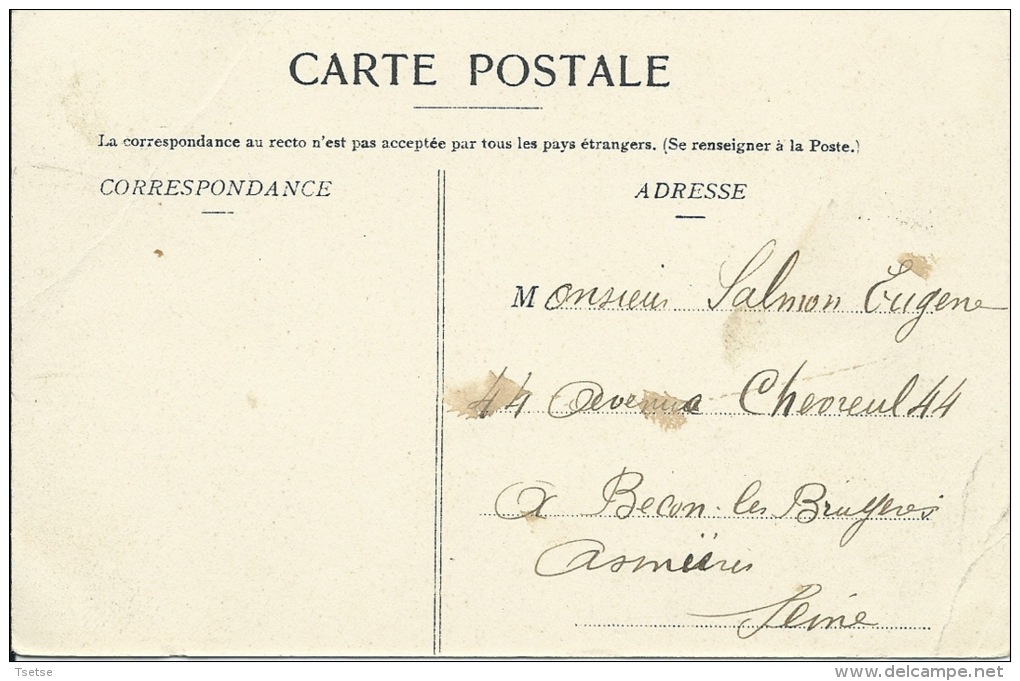 CARTE POSTALE
La correspondance au recto n'est pas acceptée par tous les pays étrangers. (Se renseigner à la Poste.)
CORRESPONDANCE
ADRESSE
Monsieur Salmon Eugene
44 Avenue Chevreul 44
A Becon-les Bruyeres
Asnières
Seine
Tsetse
delcampe.net